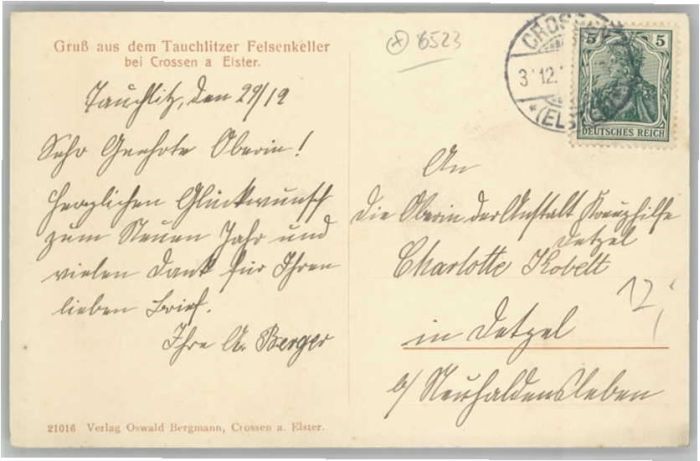 Gruß aus dem Tauchlitzer Felsenkeller
bei Crossen a Elster.
Tauchlitz, den 29/12
Sehr Geehrte Oberin!
Herzlichen Glückwunsch
zum Neuen Jahr und
vielen Dank für Ihren
lieben Brief.
Ihre A. Berger
21016 Verlag Oswald Bergmann, Crossen a. Elster.
6523
CROSSEN
12.
(ELSTER)
5 5
DEUTSCHES REICH
An
die Oberin der Anstalt Kreuzhilfe
Detzel
Charlotte Kobelt
in Detzel
b/ Neuhaldensleben